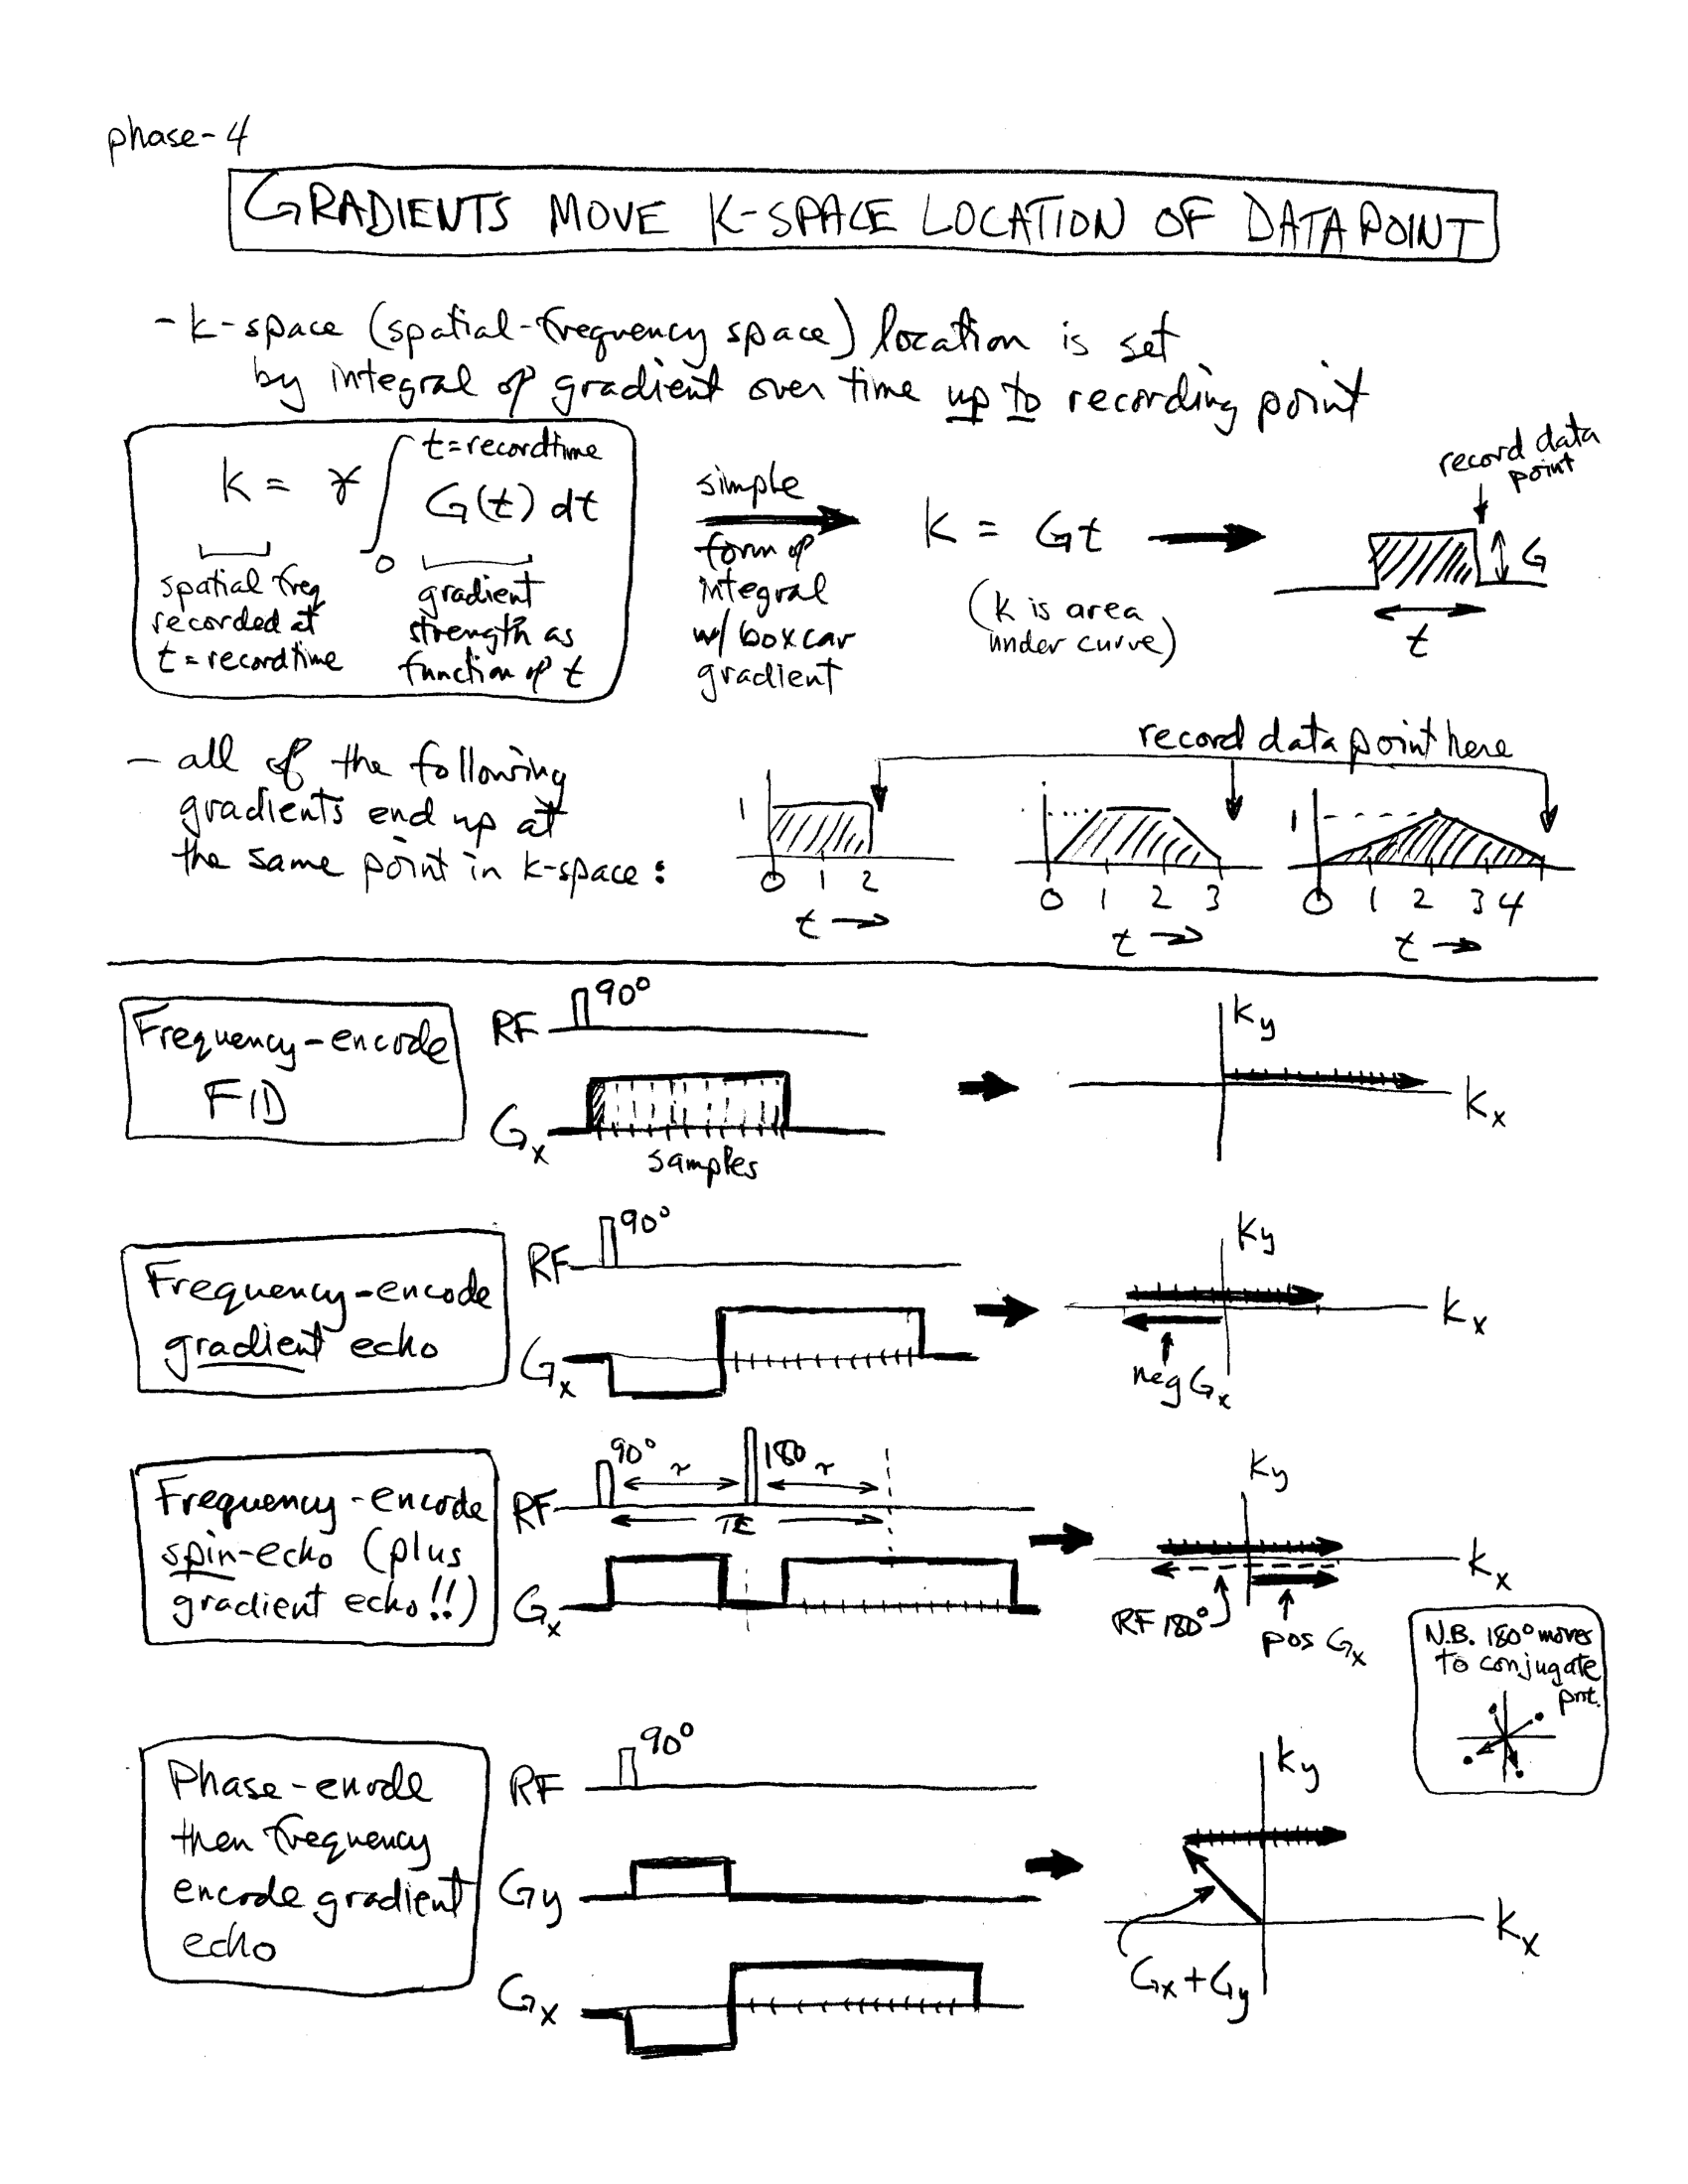 phase-4
GRADIENTS MOVE K-SPACE LOCATION OF DATA POINT
- k-space (spatial-frequency space) location is set
by integral of gradient over time up to recording point
k = γ ∫ t=recordtime
G(t) dt
0
spatial freq
recorded at
t=recordtime
gradient
strength as
function of t
simple
form of
integral
w/ boxcar
gradient
k = Gt
(k is area
under curve)
record data
point
G
t
- all of the following
gradients end up at
the same point in k-space:
record data point here
1
0 1 2
t →
0 1 2 3
t →
1
0 1 2 3 4
t →
Frequency-encode
FID
RF 90°
Gx
samples
ky
kx
Frequency-encode
gradient echo
RF 90°
Gx
ky
kx
neg Gx
Frequency-encode
spin-echo (plus
gradient echo!!)
RF 90° τ 180 τ
TE
Gx
ky
kx
RF 180°
pos Gx
N.B. 180° moves
to conjugate
pnt.
Phase-enode
then frequency
encode gradient
echo
RF 90°
Gy
Gx
ky
kx
Gx+Gy